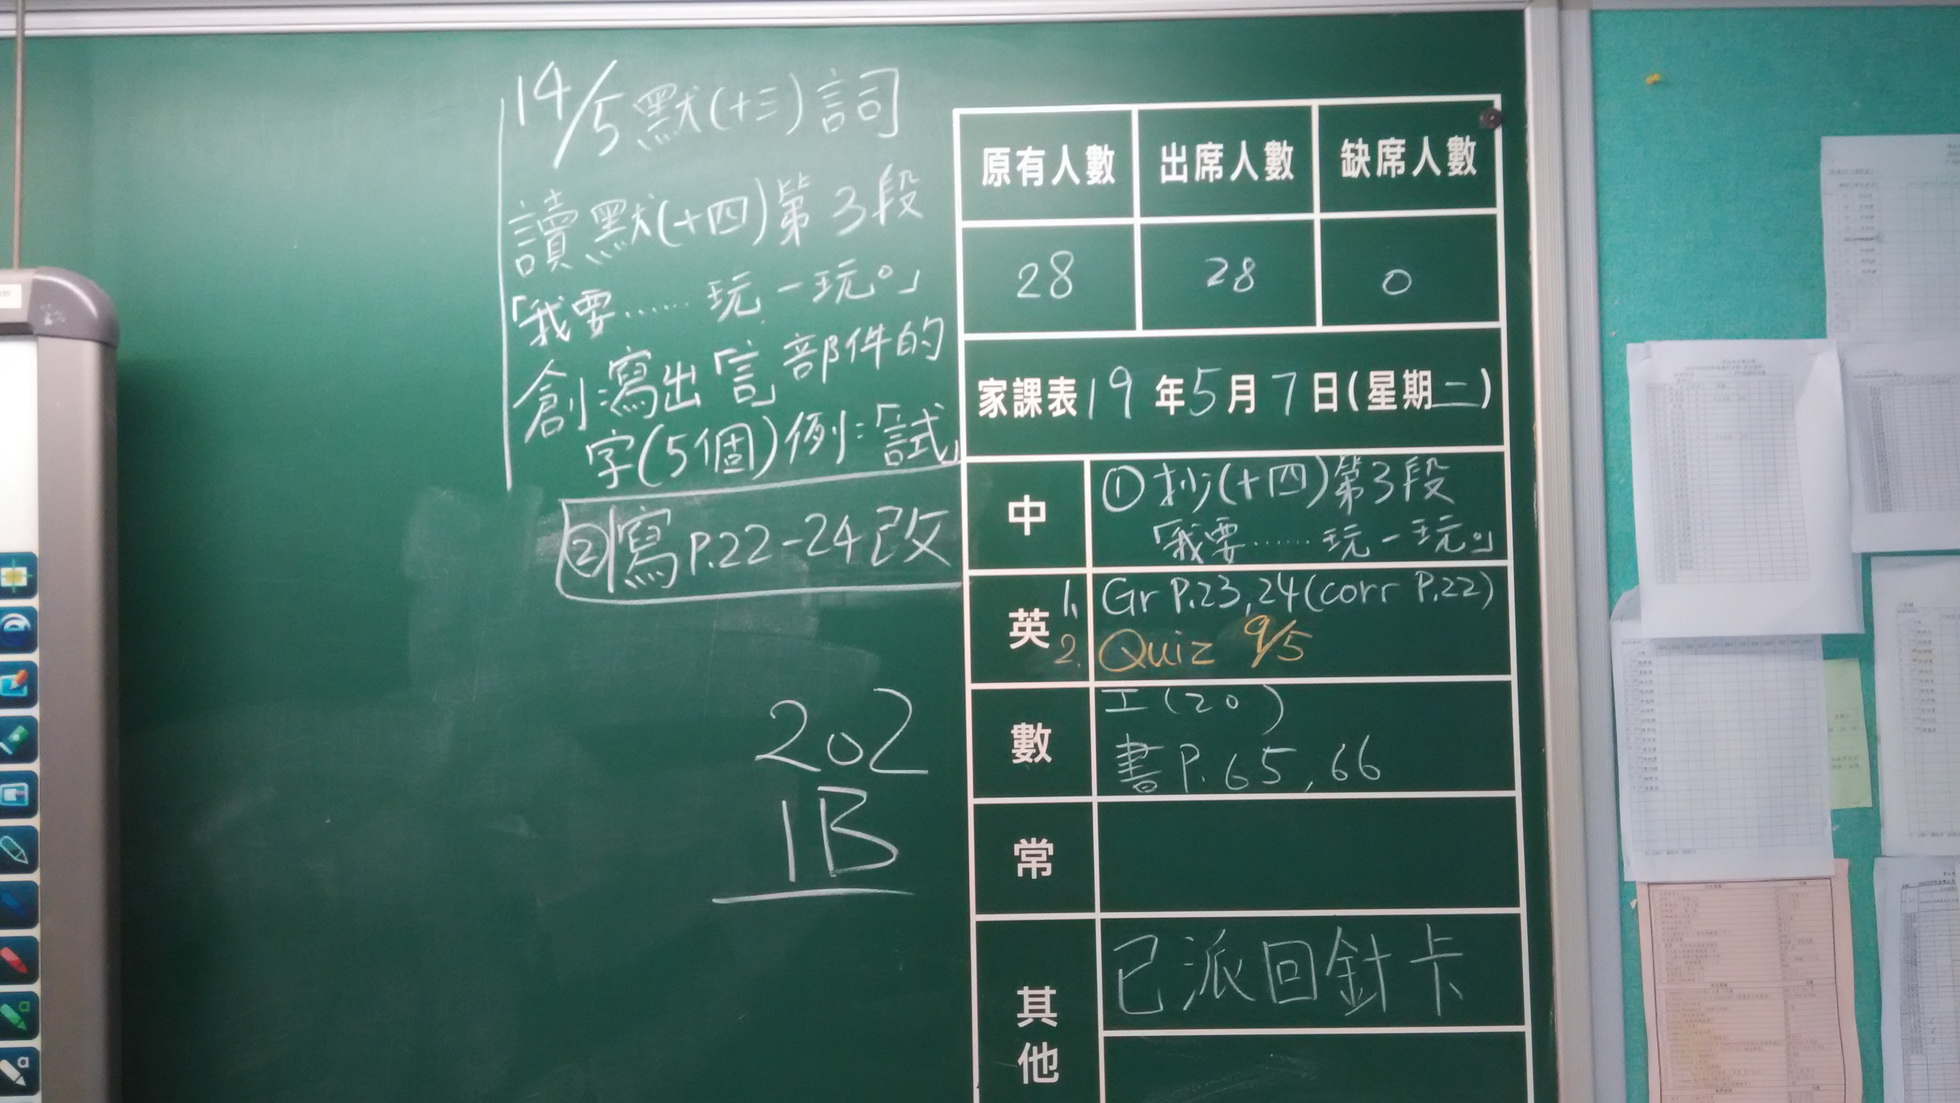 14/5 默(十三)詞
讀默(十四)第3段
「我要……玩一玩。」
創:寫出「言」部件的
字(5個)例:「試」
②寫P.22-24改
202
1B
原有人數 出席人數 缺席人數
28 28 0
家課表19年5月7日(星期二)
中 ①抄(十四)第3段
「我要……玩一玩。」
英 1. Gr P.23,24(corr P.22)
2. Quiz 9/5
數 工(20)
書P.65,66
常
其他 已派回針卡